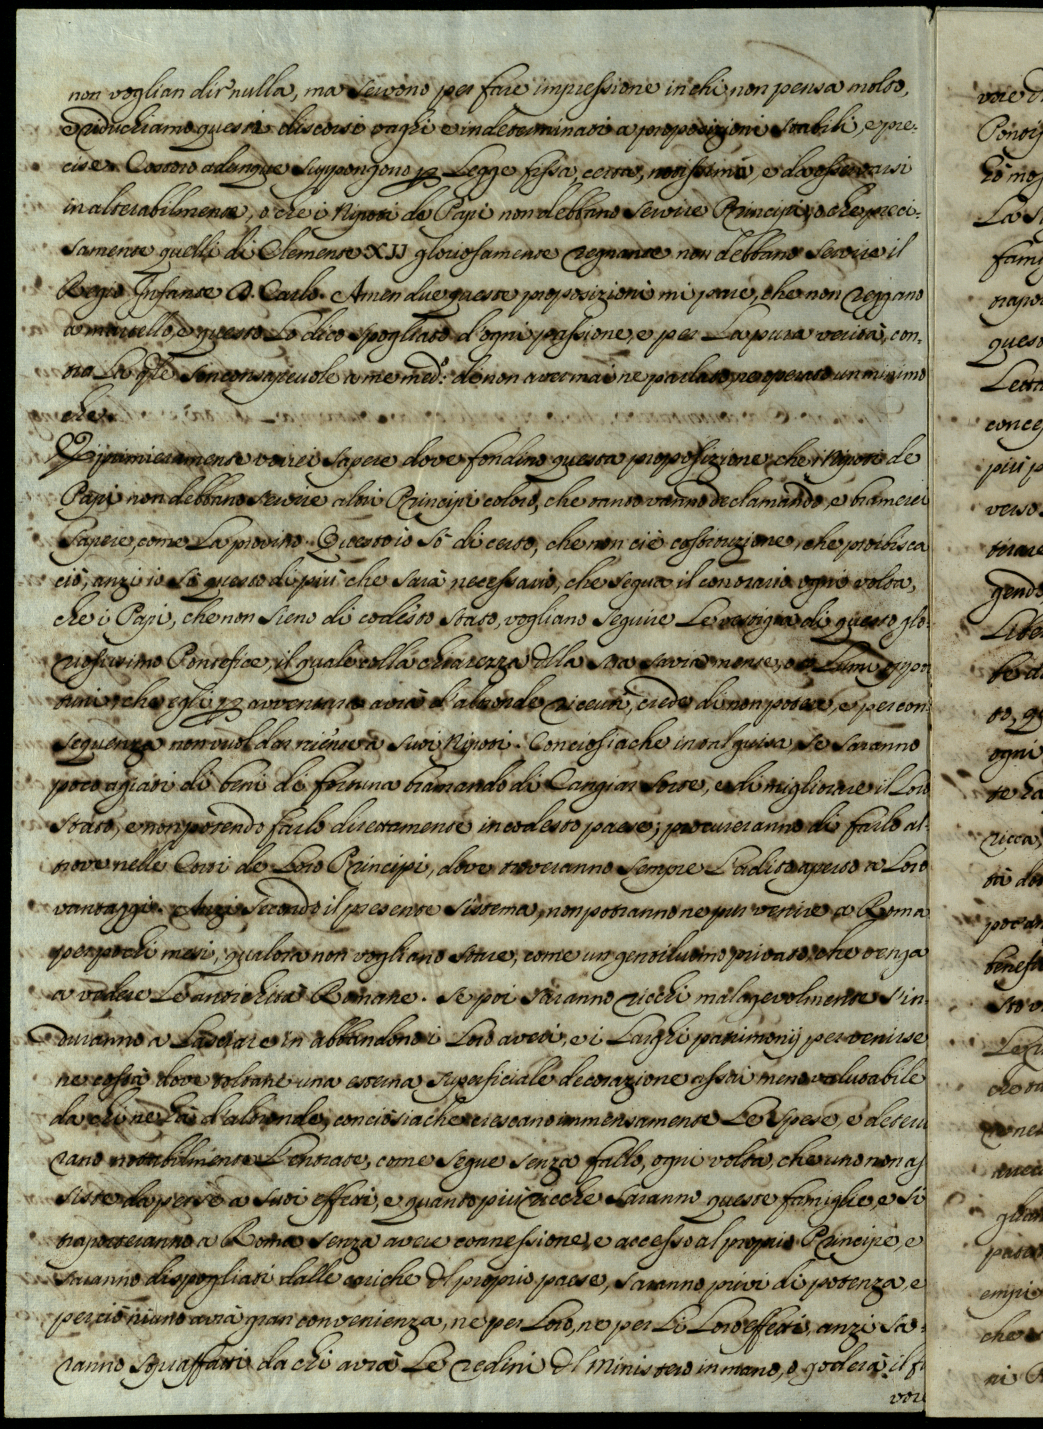 non voglian dir nulla, ma servono per fare impressione in chi non pensa molto,
e riduchiamo questi discorsi vaghi e indeterminati a proposizioni stabili, e pre-
cise. Costoro adunque suppongono p Legge fissa, certa, notissima, e da osservarsi
inalterabilmente, o che i Nipoti de Papi non debbano servire Principi, o che preci-
samente quelli di Clemente XII gloriosamente regnante non debbano servire il
Regio Infante D. Carlo. Amendue queste proposizioni mi pare, che non reggano
a martello, e questo Lo dico spogliato d'ogni passione, e per La pura verità, con-
tro La qle son consapevole a me med.o de non aver mai ne parlato, ne operato un minimo
che.
Primieramente vorrei sapere dove fondino questa proposizione, che i Nipoti de
Papi non debbano servire altri Principi coloro, che tanto vanno declamando, e bramerei
sapere, come La provino. Questo io sò di certo, che non ci è costituzione, che proibisca
ciò, anzi io sò questo di più che sarà necessario, che segua il contrario ogni volta,
che i Papi, che non sieno di codesto stato, vogliano seguire Le vestigia di questo glo-
riosissimo Pontefice, il quale colla chiarezza dlla sua savia mente, o Lumi oppor
tuni, che egli p avventura avrà d'altronde ricevuti, crede di non potere, e per con
seguenza non vuol dar niente à suoi Nipoti. Conciosiache in tal guisa se saranno
poco agiati di beni di fortuna bramando di Cangiar sorte, e di migliorare il Loro
stato, e non potendo farlo direttamente in codesto paese, procureranno di farlo al-
trove nelle Corti de Loro Principi, dove troveranno sempre L'adito aperto a Loro
vantaggi. Anzi secondo il presente sistema, non potranno ne pur venire a Roma
per pochi mesi, qualora non vogliano stare, come un gentiluomo privato, che venga
a vedere Le antichità Romane. Se poi saranno ricchi malagevolmente s'in-
duranno a Lasciare in abbandono i Loro averi, e i Larghi patrimonij per venirse
ne costà dove soltante una esterna superficiale decorazione assai meno valutabile
da chi ne hà d'altronde, conciosiache crescano immensamente Le spese, e deteri
rano notabilmente L'entrate, come segue senza fallo, ogni volta, che uno non as
siste da perse a suoi effetti, e quanto più ricche saranno queste famiglie, e si
trasporteranno a Roma senza avere connessione, e accesso al proprio Principe, e
saranno dispogliati dalle cariche dl proprio paese, saranno privi di potenza, e
perciò niuno avrà gran convenienza, ne per Loro, ne per Li Loro effetti, anzi sa-
ranno squaffati da chi avrà Le redini dl Ministero in mano, o goderà il fa
vore